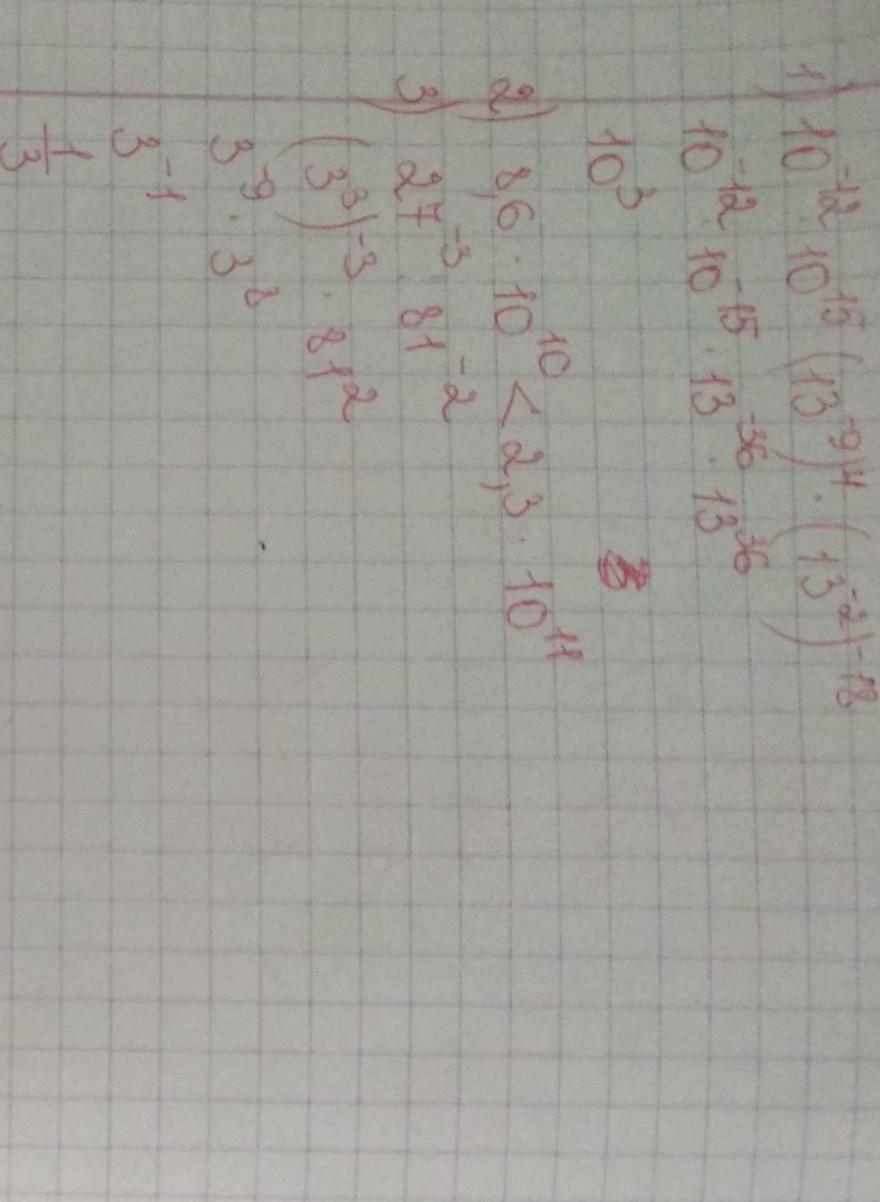 1) 10⁻¹² · 10¹⁵ (13⁻⁹)⁴ · (13⁻²)⁻¹⁸
10⁻¹² · 10⁻¹⁵ · 13⁻³⁶ · 13³⁶
10³
2) 8,6 · 10¹⁰ < 2,3 · 10¹¹
3) 27⁻³ · 81⁻²
(3³)⁻³ · 81²
3⁻⁹ · 3⁸
3⁻¹
1/3